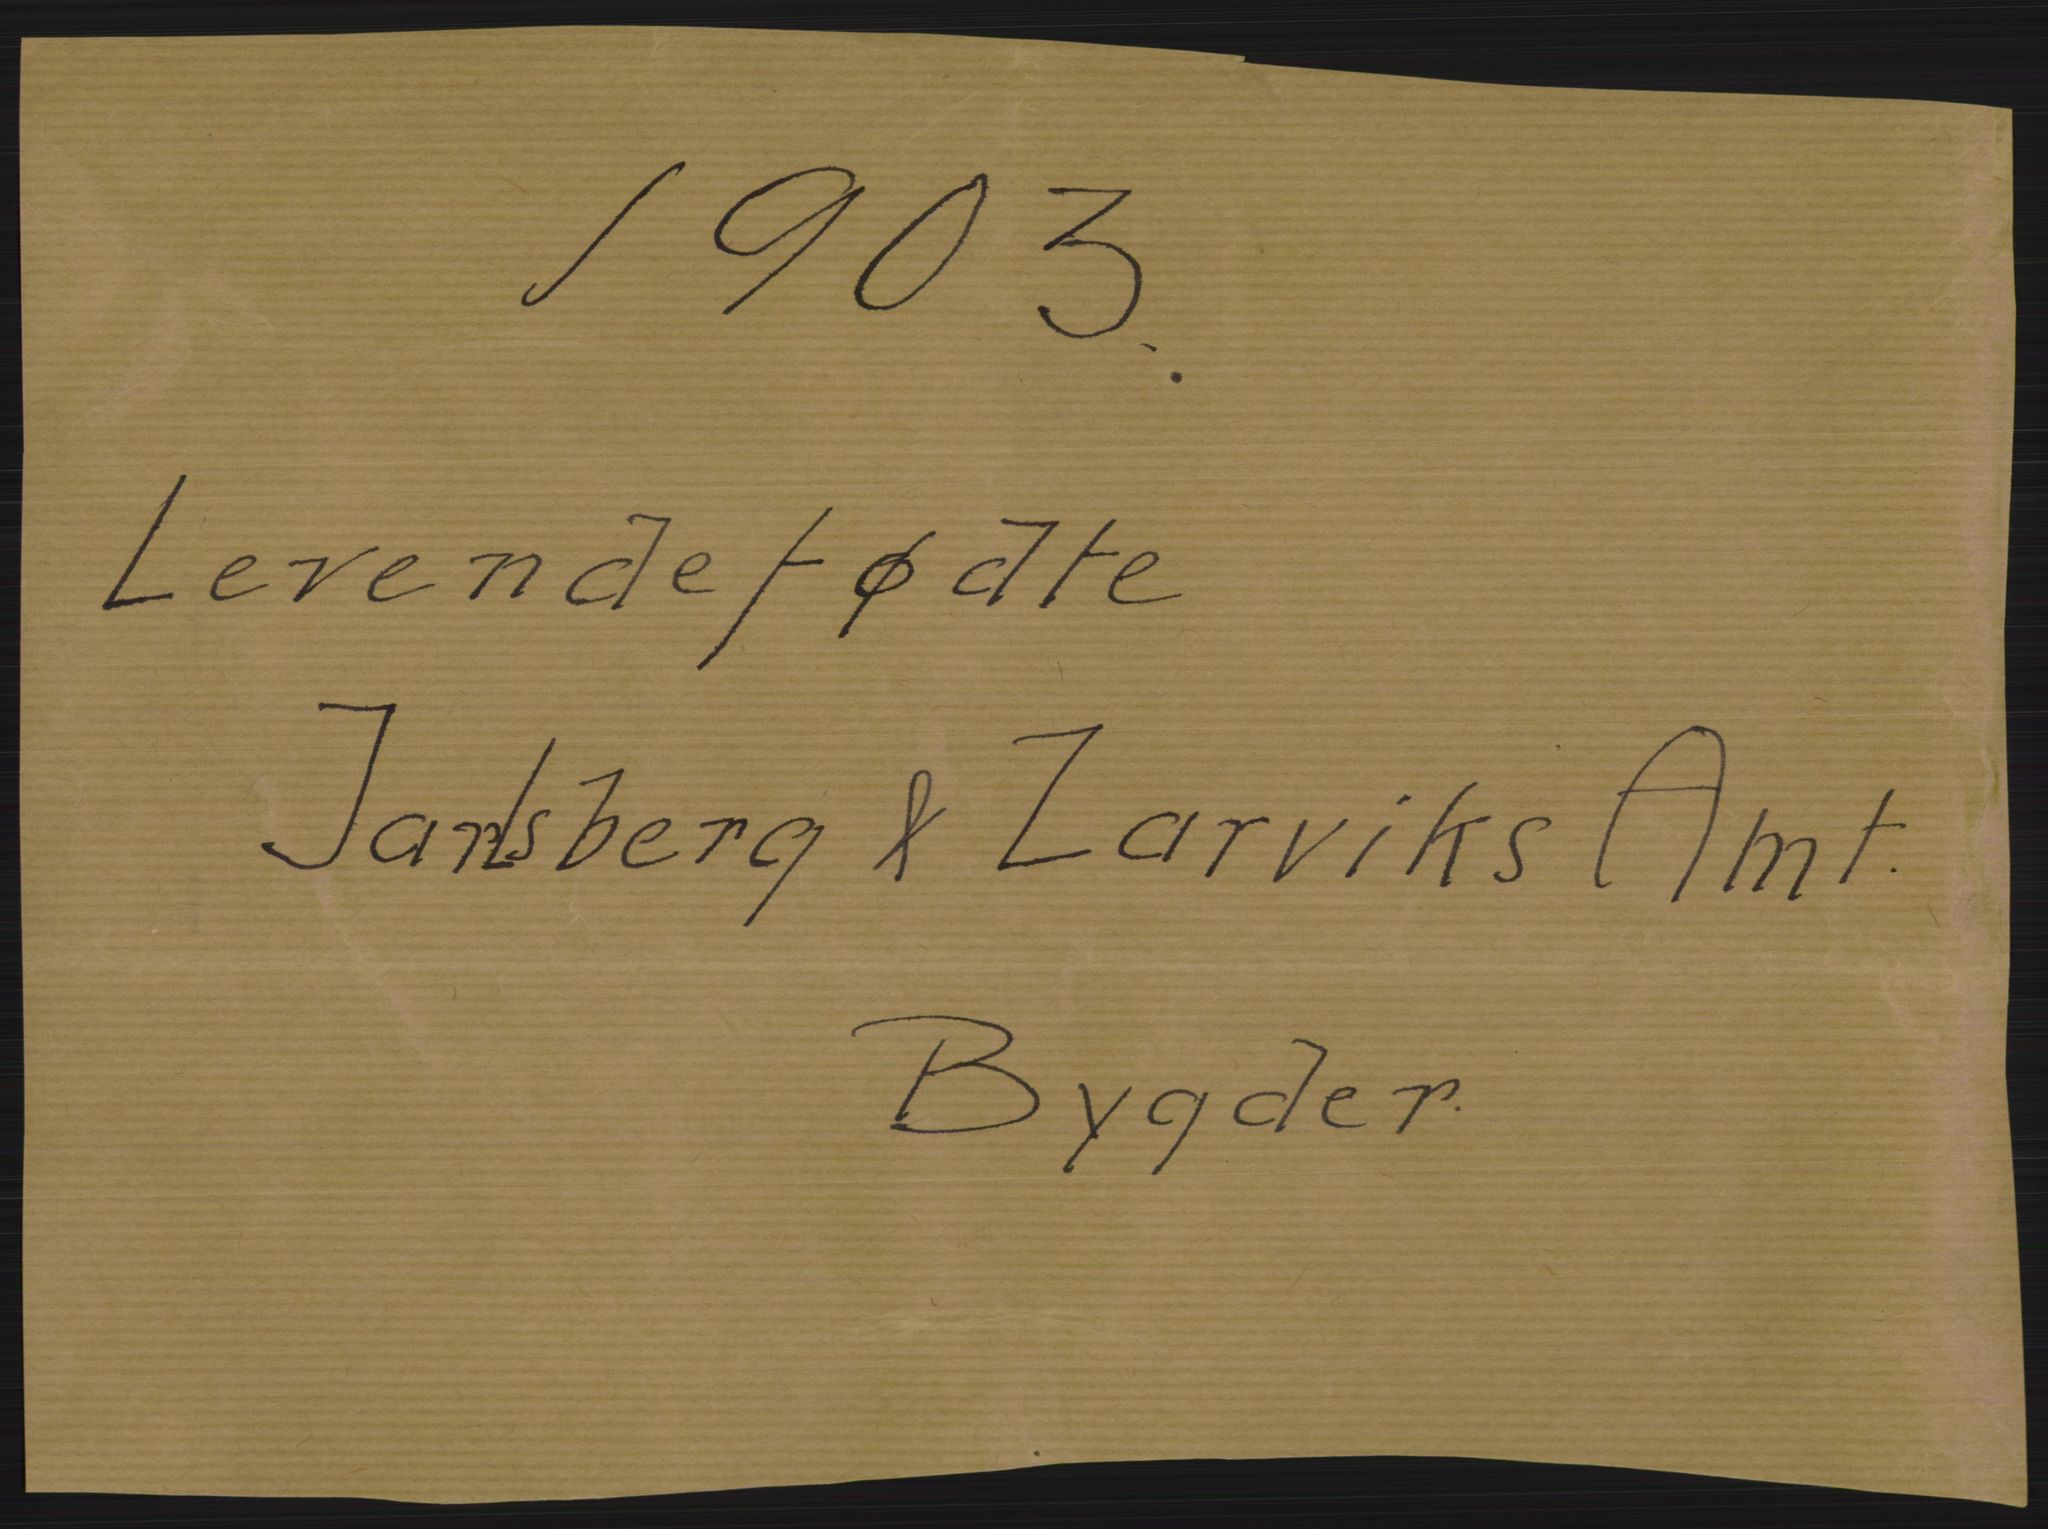 1903.
Levendefødte
Jarlsberg & Larviks Amt.
Bygder.